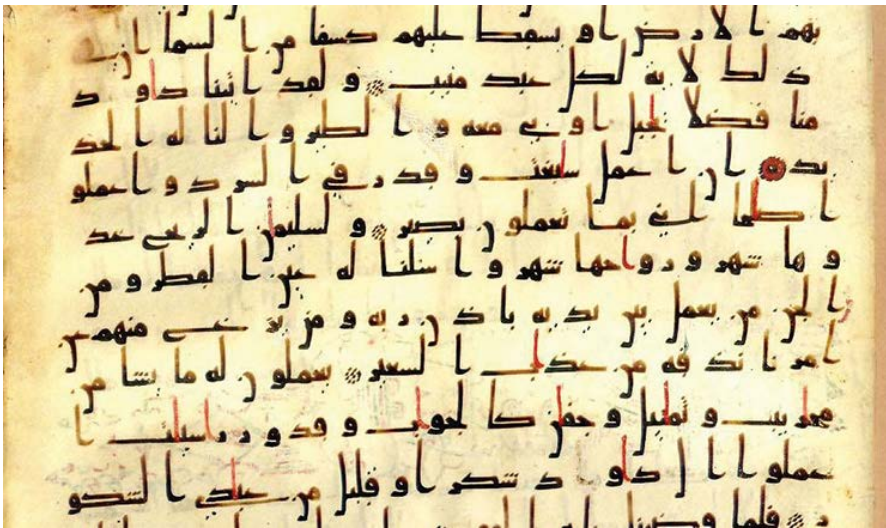 بهم الارض او نسقط عليهم كسفا من السما ان في
ذلك لاية لكل عبد منيب ولقد اتينا داود
منا فضلا يجبال اوبي معه والطير والنا له الحد
يد ان اعمل سابغات وقدر في السرد واعملو
ا صالحا اني بما تعملون بصير ولسليمان الريح غد
وها شهر ورواحها شهر واسلنا له عين القطر ومن
الجن من يعمل بين يديه باذن ربه ومن يزغ منهم عن
امرنا نذقه من عذاب السعير يعملون له ما يشا من
محاريب وتماثيل وجفان كالجواب وقدور راسيات ا
عملوا ال داود شكرا وقليل من عبادي الشكو
ر فلما قضينا عليه